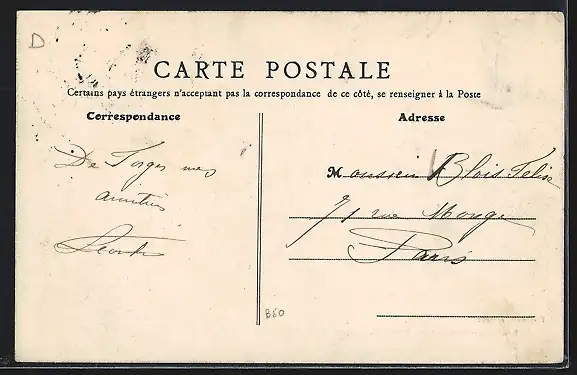 D
CARTE POSTALE
Certains pays étrangers n'acceptant pas la correspondance de ce côté, se renseigner à la Poste
Correspondance
Adresse
De Forges mes
amitiés
Monsieur Blois Felix
71 rue Monge
Paris
B60